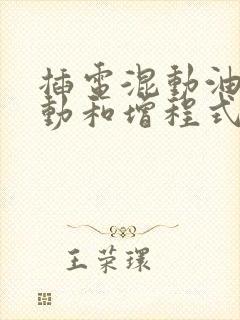 插电混動油
動和增程式
王荣環